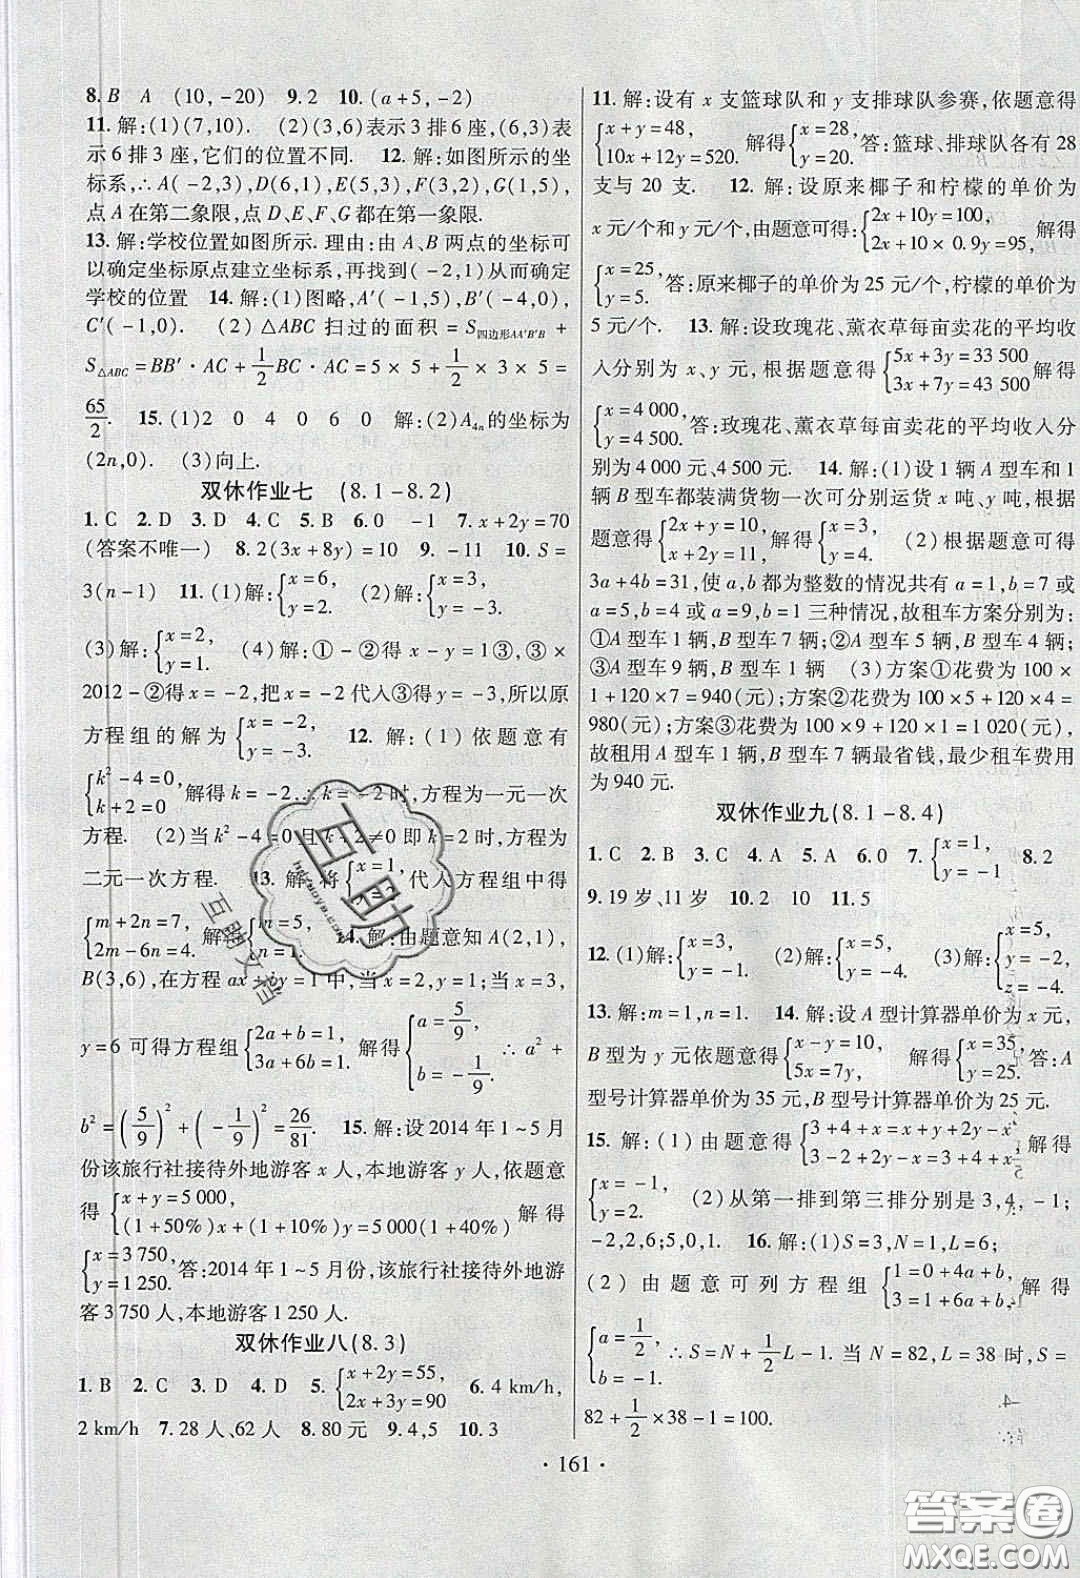 8. B A (10, -20) 9. 2 10. (a+5, -2)
11. 解:(1)(7,10). (2)(3,6)表示3排6座,(6,3)表
示6排3座,它们的位置不同. 12. 解:如图所示的坐
标系,∴A(-2,3),D(6,1),E(5,3),F(4,2),G(1,5),
点A在第二象限,点D、E、F、G都在第一象限.
13. 解:学校位置如图所示. 理由:由A、B两点的坐标可
以确定坐标原点建立坐标系,再找到(-2,1)从而确定
学校的位置 14. 解:(1)图略,A′(-1,5),B′(-4,0),
C′(-1,0). (2)△ABC扫过的面积=S四边形AA′B′B+
S△ABC=BB′·AC+1/2BC·AC=5×5+1/2×3×5=
65/2. 15. (1)2 0 4 0 6 0 解:(2)A4n的坐标为
(2n,0). (3)向上.
双休作业七 (8.1-8.2)
1. C 2. D 3. D 4. C 5. B 6. 0 -1 7. x+2y=70
(答案不唯一) 8. 2(3x+8y)=10 9. -11 10. S=
3(n-1) 11. (1)解:{x=6, y=2. (2)解:{x=2, y=-3.
(3)解:{x=2, y=1. (4)解:①-②得x-y=1③,③×
2012-②得x=-2,把x=-2代入③得y=-3,所以原
方程组的解为{x=-2, y=-3. 12. 解:(1)依题意有
{k²-4=0, k+2=0. 解得k=-2.∴k=-2时,方程为一元一次
方程. (2)当k²-4=0且k+2≠0即k=2时,方程为
二元一次方程. 13. 解:将{x=1, 代入方程组中得
{m+2n=7, 2m-6n=4. 解 =5, n=1. 14. 解:由题意知A(2,1),
B(3,6),在方程ax y=1中,当x=2,y=1,当x=3,
y=6可得方程组{2a+b=1, 3a+6b=1. 解得{a=5/9, b=-1/9. ∴a²+
b²=(5/9)²+(-1/9)²=26/81. 15. 解:设2014年1~5月
份该旅行社接待外地游客x人,本地游客y人,依题意
得{x+y=5 000, (1+50%)x+(1+10%)y=5 000(1+40%) 解得
{x=3 750, y=1 250. 答:2014年1~5月份,该旅行社接待外地游
客3 750人,本地游客1 250人.
双休作业八(8.3)
1. B 2. C 3. D 4. D 5. {x+2y=55, 2x+3y=90 6. 4 km/h,
2 km/h 7. 28人、62人 8. 80元 9. 4,5 10. 3
11. 解:设有x支篮球队和y支排球队参赛,依题意得
{x+y=48, 10x+12y=520. 解得{x=28, y=20. 答:篮球、排球队各有28
支与20支. 12. 解:设原来椰子和柠檬的单价为
x元/个和y元/个,由题意可得:{2x+10y=100, 2x+10×0.9y=95, 解得
{x=25, y=5. 答:原来椰子的单价为25元/个,柠檬的单价为
5元/个. 13. 解:设玫瑰花、薰衣草每亩卖花的平均收
入分别为x、y元,根据题意得{5x+3y=33 500 3x+7y=43 500 解得
{x=4 000, y=4 500. 答:玫瑰花、薰衣草每亩卖花的平均收入分
别为4 000元、4 500元. 14. 解:(1)设1辆A型车和1
辆B型车都装满货物一次可分别运货x吨、y吨,根据
题意得{2x+y=10, x+2y=11, 解得{x=3, y=4. (2)根据题意可得
3a+4b=31,使a,b都为整数的情况共有a=1,b=7或
a=5,b=4或a=9,b=1三种情况,故租车方案分别为:
①A型车1辆,B型车7辆;②A型车5辆,B型车4辆;
③A型车9辆,B型车1辆 (3)方案①花费为100×
1+120×7=940(元);方案②花费为100×5+120×4=
980(元);方案③花费为100×9+120×1=1 020(元),
故租用A型车1辆,B型车7辆最省钱,最少租车费用
为940元.
双休作业九(8.1-8.4)
1. C 2. B 3. C 4. A 5. A 6. 0 7. {x=1, y=-1 8. 2
9. 19岁、11岁 10. 2 10 11. 5
12. (1)解:{x=3, y=-1. (2)解:{x=5, y=-4. (3)解:{x=5, y=-2, z=-4.
13. 解:m=1,n=1. 14. 解:设A型计算器单价为x元,
B型为y元依题意得{x-y=10, 5x=7y, 解得{x=35, y=25. 答:A
型号计算器单价为35元,B型号计算器单价为25元.
15. 解:(1)由题意得{3+4+x=x+y+2y-x 3-2+2y-x=3+4+x 解得
{x=-1, y=2. (2)从第一排到第三排分别是3,4,-1;
-2,2,6;5,0,1. 16. 解:(1)S=3,N=1,L=6;
(2)由题意可列方程组{1=0+4a+b, 3=1+6a+b, 解得
{a=1/2, b=-1. ∴S=N+1/2L-1. 当N=82,L=38时,S=
82+1/2×38-1=100.
· 161 ·
互助
互助文档
答案圈
MXQE.COM